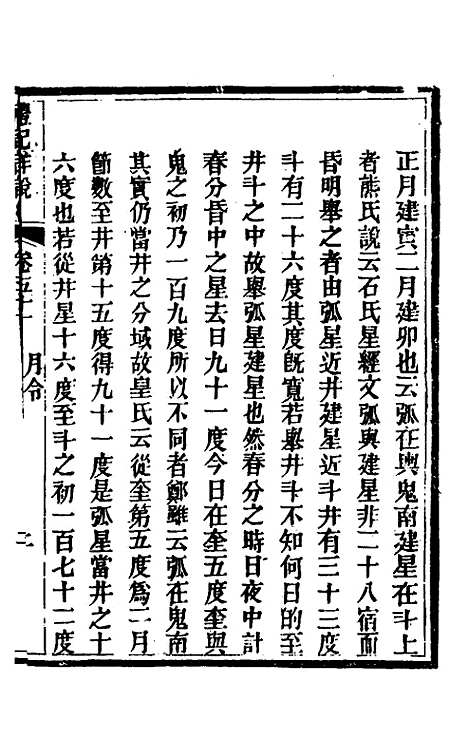 正月建寅二月建卯也云弧在輿鬼南建星在斗上
者熊氏說云石氏星經文弧與建星非二十八宿而
昏明舉之者由弧星近井建星近斗井有三十三度
斗有二十六度其度旣寬若舉井斗不知何日的至
井斗之中故舉弧星建星也然春分之時日夜中計
春分昏中之星去日九十一度今日在奎五度奎與
鬼之初乃一百九度所以不同者鄭雖云弧在鬼南
其實仍當井之分域故皇氏云從奎第五度爲二月
節數至井第十五度得九十一度是弧星當井之十
六度也若從井星十六度至斗之初一百七十二度
禮記詳說
卷五十
月令